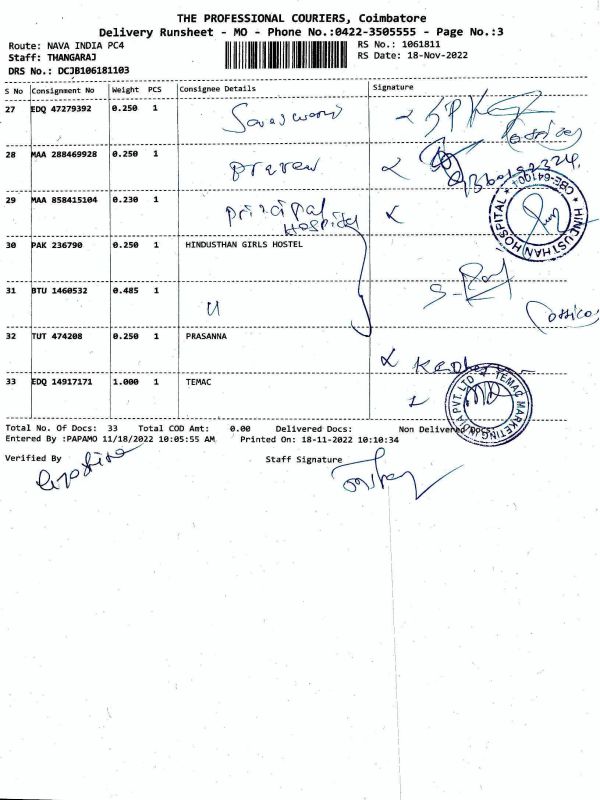 THE PROFESSIONAL COURIERS, Coimbatore
Delivery Runsheet - MO - Phone No.:0422-3505555 - Page No.:3
Route: NAVA INDIA PC4
RS No.: 1061811
Staff: THANGARAJ
RS Date: 18-Nov-2022
DRS No.: DCJB106181103
S No Consignment No Weight PCS Consignee Details Signature
27 EDQ 47279392 0.250 1
28 MAA 288469928 0.250 1
29 MAA 858415104 0.230 1 Principal
Hospital
HINDUSTHAN HOSPITAL * CBE-641004 *
30 PAK 236790 0.250 1 HINDUSTHAN GIRLS HOSTEL
31 BTU 1460532 0.485 1
32 TUT 474208 0.250 1 PRASANNA
33 EDQ 14917171 1.000 1 TEMAC
TEMAC MARKETING INDIA PVT. LTD
Total No. Of Docs: 33 Total COD Amt: 0.00 Delivered Docs: Non Delivered Docs:
Entered By :PAPAMO 11/18/2022 10:05:55 AM Printed On: 18-11-2022 10:10:34
Verified By Staff Signature